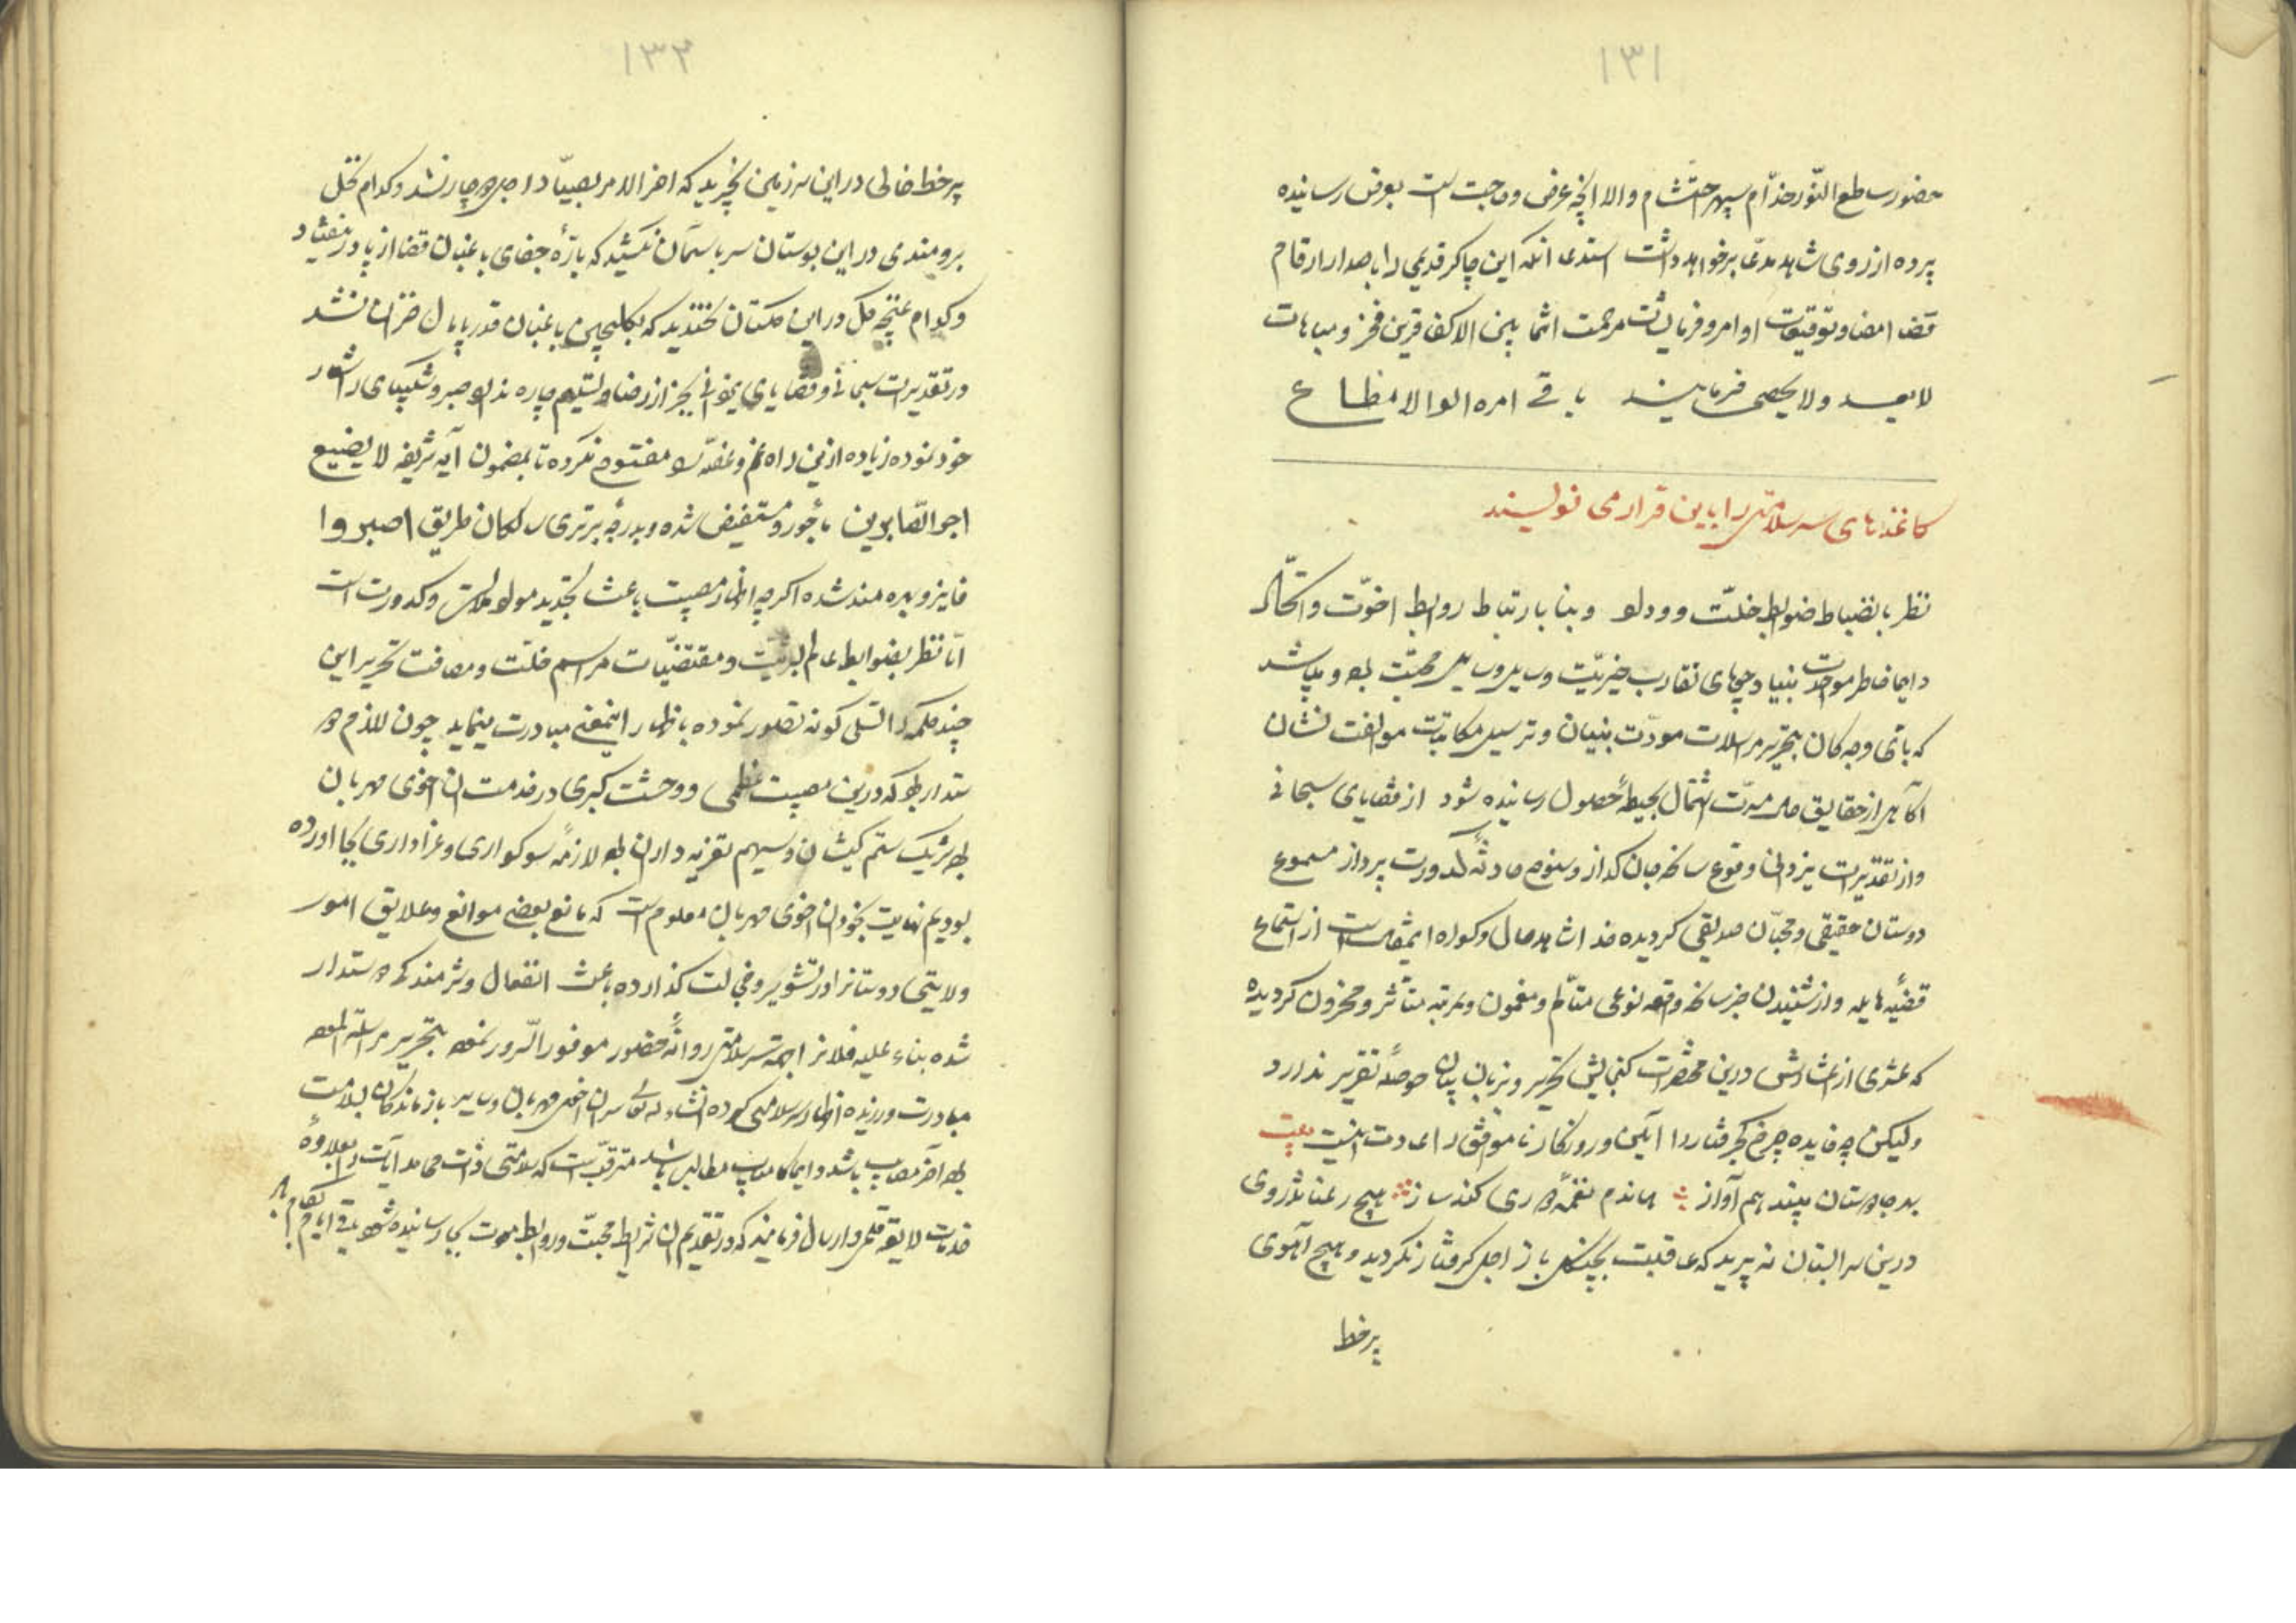 ۱۳۱
حضور ساطع النّور خدّام سپهر احتشام والا انچه عرض و حاجت است بعرض رسانیده
پرده از روی شاهد مدعّا برخواهد داشت استدعا انکه این چاکر قدیمی را باصدار ارقام
قضا امضا و توقیعات او امر و فرمایشات مرحمت انتما بین الاکفا قرین فخر و مباهات
لایعد ولا یحصی فرمایند باقی امره الوالا مطاع
کاغذهای سرسلامتی را باین قرار می نویسند
نظر بانضباط ضوابط خلّت و وداد و بنا بارتباط روابط اخوّت و اتحّاد
دایما خاطر مودّت بنیاد جویای تقارب خیریّت وسایل رسایل محبّت بوده و میباشد
که باتی وجه کان بتحریر مراسلات مودّت بنیان و ترسیل مکاتبات موالفت نشان
اکاهی از حقایق حال مسرّت اشتمال بحیطهٔ حصول رسانیده شود از قضایای سبحانی
و از تقدیرات یزدانی وقوع سانحه جان کداز و سنوح حادثهٔ کدورت پرداز مسموع
دوستان حقیقی و محبّان صدیقی کردیده خدا شاهد حال و کواه این مقال است از استماع
قضیّه هایله و از شنیدن خبر سانحه واقعه نوعی متألم و مغموم و بمرتبه متأثر و محزون کردیده
که عشری از اعشارش درین مختصرات کنجایش تحریر و بزبان بیان حوصلهٔ تقریر ندارد
ولیکن چه فایده چرخ کجرفتار را آئین و روزکار ناموافق را عادت اینست بیت
بهر جا دوستان بینند هم آواز همان دم نغمهٔ دوری کند ساز هیچ رعنا تذروی
درین سرابستان نه پرید که عاقبت بچنکال باز اجل کرفتار نکردید و هیچ آهوی
پر خط
۱۳۲
پر خط خالی در این سرزمین نچرید که اخر الامر بصیّاد اجل دوچار نشد و کدام نخل
برومندی در این بوستان سر باسمان نکشید که بارّهٔ جفای باغبان قضا از پا در نیفتاد
و کدام غنچه کل در این کلستان نخندید که بکلچین باغبان قدر پایمال خزان نشد
در تقدیرات سبحانی و قضایای یزدانی بجز از رضا و تسلیم چاره نداد صبر و شکیبای را شعار
خود نموده زیاده ازین راه غم و غصّه را مفتوح نکرده تا بمضمون آیه شریفه لا یضیع
اجر الصّابرین مأجور و مستفیض شده و بدرجه برتری سالکان طریق اصبروا
فایز و بهره مند شده اکرچه اظهار مصیبت باعث تجدید مواد ملالت و کدورت است
امّا نظر بضوابط عالم بشریّت و مقتضیّات مراسم خلّت و مصافت تحریر این
چند کلمه را تسلی کونه تصّور نموده باظهار اینمعنی مبادرت مینماید چون لازم دو
ستدار بود که درین مصیبت عظمی و وحشت کبری در خدمت ان اخوی مهربان
بوده شریک ستم کیشان و سهیم تعزیه داران بوده لازمهٔ سوکواری و عزاداری بجا اورده
بودیم نهایت بخود ان اخوی مهربان معلوم است که مانع بعضی موانع و علایق امور
ولایتی دوستانرا در تشویر و خجالت کذارده باعث انفعال و شرمندکی دوستدار
شده بناء علیه فلانرا بجهت سرسلامتی روانهٔ حضور موفور السّرور نموده بتحریر مراسله الموده
مبادرت ورزیده اظهار سرسلامتی کرده انشاء الله تعالی سر ان اخوی مهربان و سایر بازماندکان بسلامت
بوده آخر مصایب باشد و ایما کامیاب مطالب باشد مترقّب است که سلامتی ذات محامد آیات را بعلاوهٔ
خدمات لایقه قلمی و ارسال فرمایند که در تقدیم ان شرایط محبّت و روابط مودت بجا رسانیده شود باقی ایام بکام باد